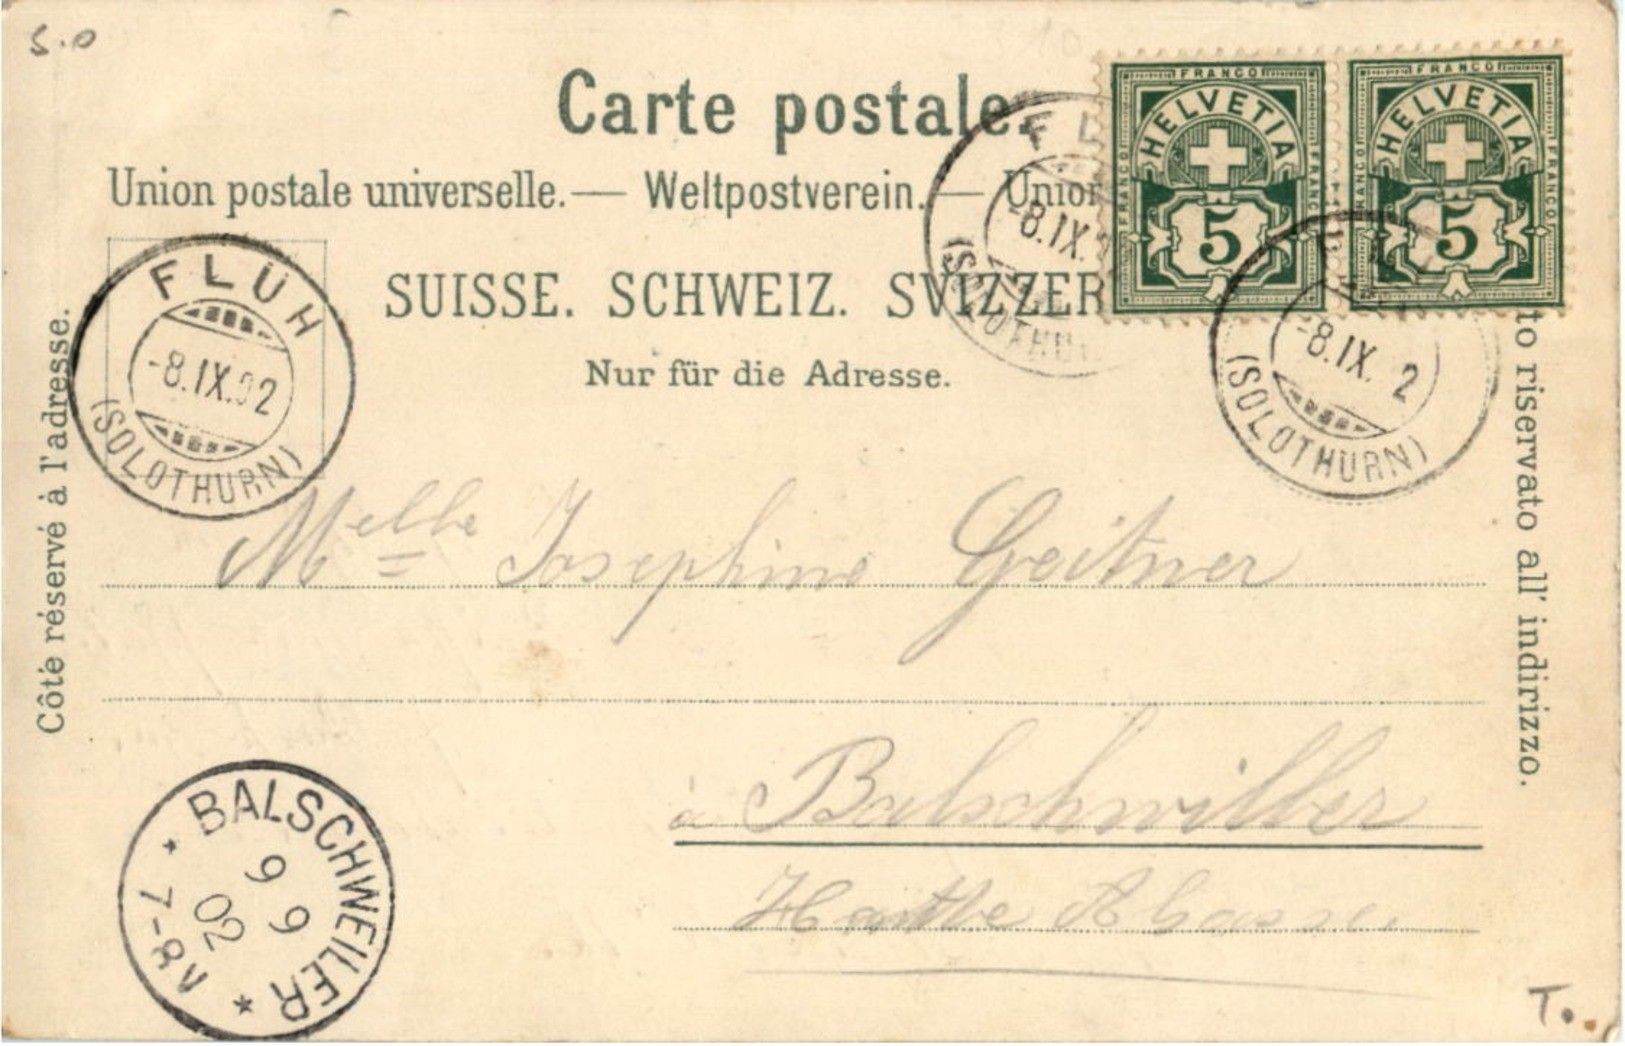 S.O
Carte postale.
Union postale universelle. — Weltpostverein. — Union
SUISSE. SCHWEIZ. SVIZZER
Nur für die Adresse.
Côté réservé à l'adresse.
to riservato all' indirizzo.
FRANCO
HELVETIA
FRANCO
FRANCO
5
FRANCO
HELVETIA
FRANCO
FRANCO
5
FLÜH
-8.IX.02
(SOLOTHURN)
FL
-8.IX.
(SOLOTHUR
-8.IX. 2
(SOLOTHURN)
Melle Josephine Geitner
à Balschwiller
Haute Alsasse
BALSCHWEILER
9 9
02
7-8V
T.